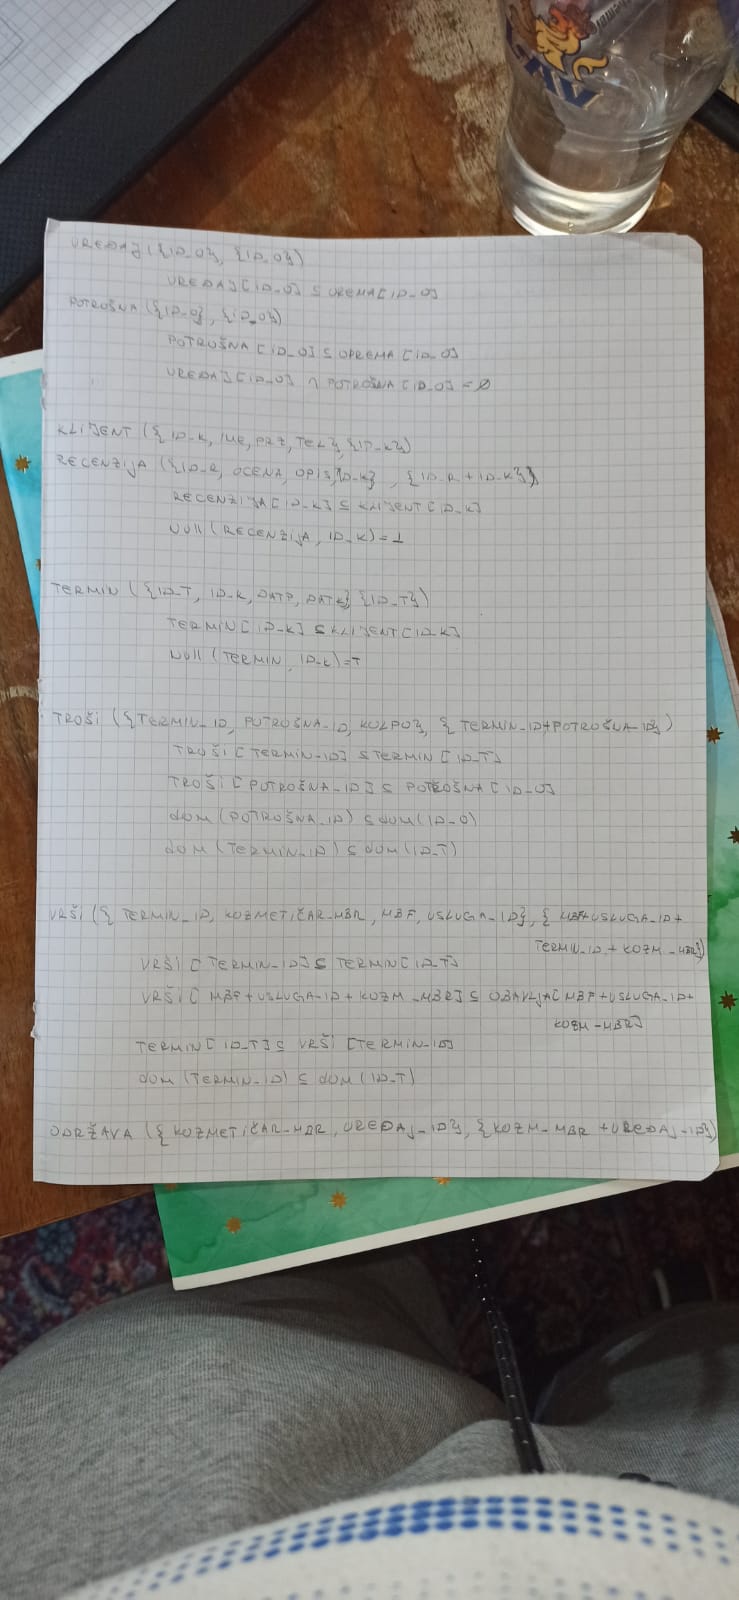 LAV
UREĐAJ ({ID_O}, {ID_O})
UREĐAJ [ID_O] ⊆ OREMA [ID_O]
POTROŠNA ({ID_O}, {ID_O})
POTROŠNA [ID_O] ⊆ OPREMA [ID_O]
UREĐAJ [ID_O] ∩ POTROŠNA [ID_O] = ∅
KLIJENT ({ID_K, IME, PRZ, TEL}, {ID_K})
RECENZIJA ({ID_R, OCENA, OPIS, ID_K}, {ID_R + ID_K})
RECENZIJA [ID_K] ⊆ KLIJENT [ID_K]
NUll (RECENZIJA, ID_K) = ⊥
TERMIN ({ID_T, ID_K, DATP, DATK} {ID_T})
TERMIN [ID_K] ⊆ KLIJENT [ID_K]
NUll (TERMIN, ID_K) = T
TROŠI ({TERMIN_ID, POTROŠNA_ID, KOLPO}, { TERMIN_ID+POTROŠNA_ID})
TROŠI [TERMIN_ID] ⊆ TERMIN [ID_T]
TROŠI [POTROŠNA_ID] ⊆ POTROŠNA [ID_O]
dom (POTROŠNA_ID) ⊆ dom (ID_O)
dom (TERMIN_ID) ⊆ dom (ID_T)
VRŠI ({ TERMIN_ID, KOZMETIČAR_MBR, MBF, USLUGA_ID}, { MBF+USLUGA_ID+
TERMIN_ID + KOZM_MBR})
VRŠI [TERMIN_ID] ⊆ TERMIN [ID_T]
VRŠI [ MBF+USLUGA_ID+KOZM_MBR] ⊆ OBAVLJA [MBF+USLUGA_ID+
KOZM_MBR]
TERMIN [ID_T] ⊆ VRŠI [TERMIN_ID]
dom (TERMIN_ID) ⊆ dom (ID_T)
ODRŽAVA ({KOZMETIČAR_MBR, UREĐAJ_ID}, {KOZM_MBR + UREĐAJ_ID})